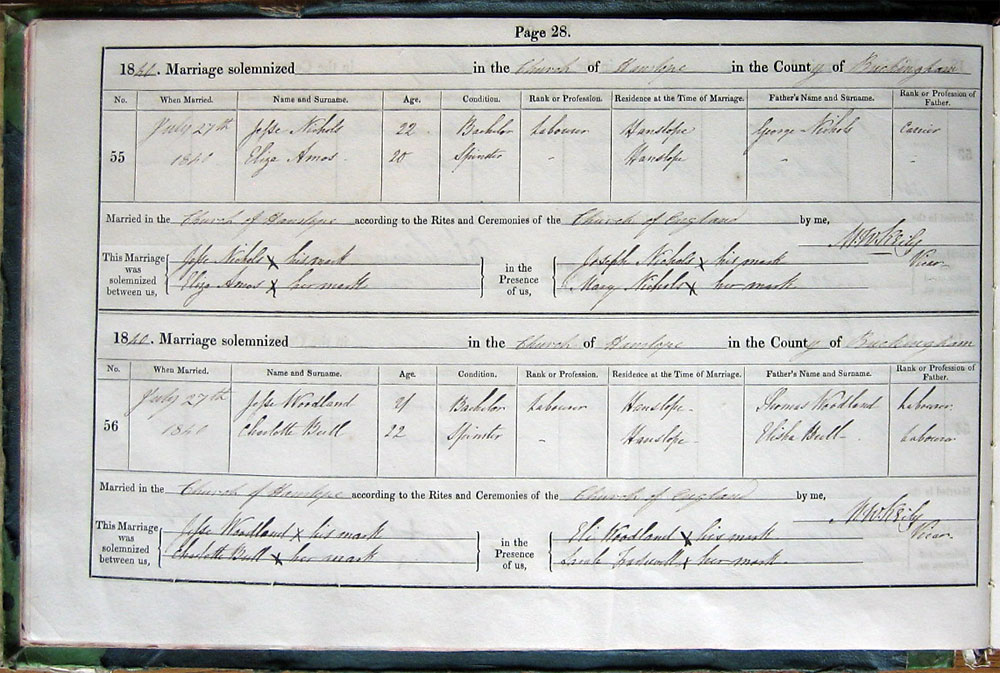 Page 28.
1840. Marriage solemnized in the Church of Hanslope in the County of Buckingham
No. When Married. Name and Surname. Age. Condition. Rank or Profession. Residence at the Time of Marriage. Father's Name and Surname. Rank or Profession of Father.
July 27th Jesse Nichols 22 Bachelor Labourer Hanslope George Nichols Carrier
55 1840 Eliza Amos 20 Spinster - Hanslope - -
Married in the Church of Hanslope according to the Rites and Ceremonies of the Church of England by me,
Vicar
This Marriage was solemnized between us,
Jesse Nichols X his mark
Eliza Amos X her mark
in the Presence of us,
Joseph Nichols X his mark
Mary Nichols X her mark
1840. Marriage solemnized in the Church of Hanslope in the County of Buckingham
No. When Married. Name and Surname. Age. Condition. Rank or Profession. Residence at the Time of Marriage. Father's Name and Surname. Rank or Profession of Father.
July 27th Jesse Woodland 21 Bachelor Labourer Hanslope Thomas Woodland Labourer
56 1840 Charlotte Bull 22 Spinster - Hanslope Elisha Bull Labourer
Married in the Church of Hanslope according to the Rites and Ceremonies of the Church of England by me,
Vicar
This Marriage was solemnized between us,
Jesse Woodland X his mark
Charlotte Bull X her mark
in the Presence of us,
Eli Woodland X his mark
Sarah X her mark